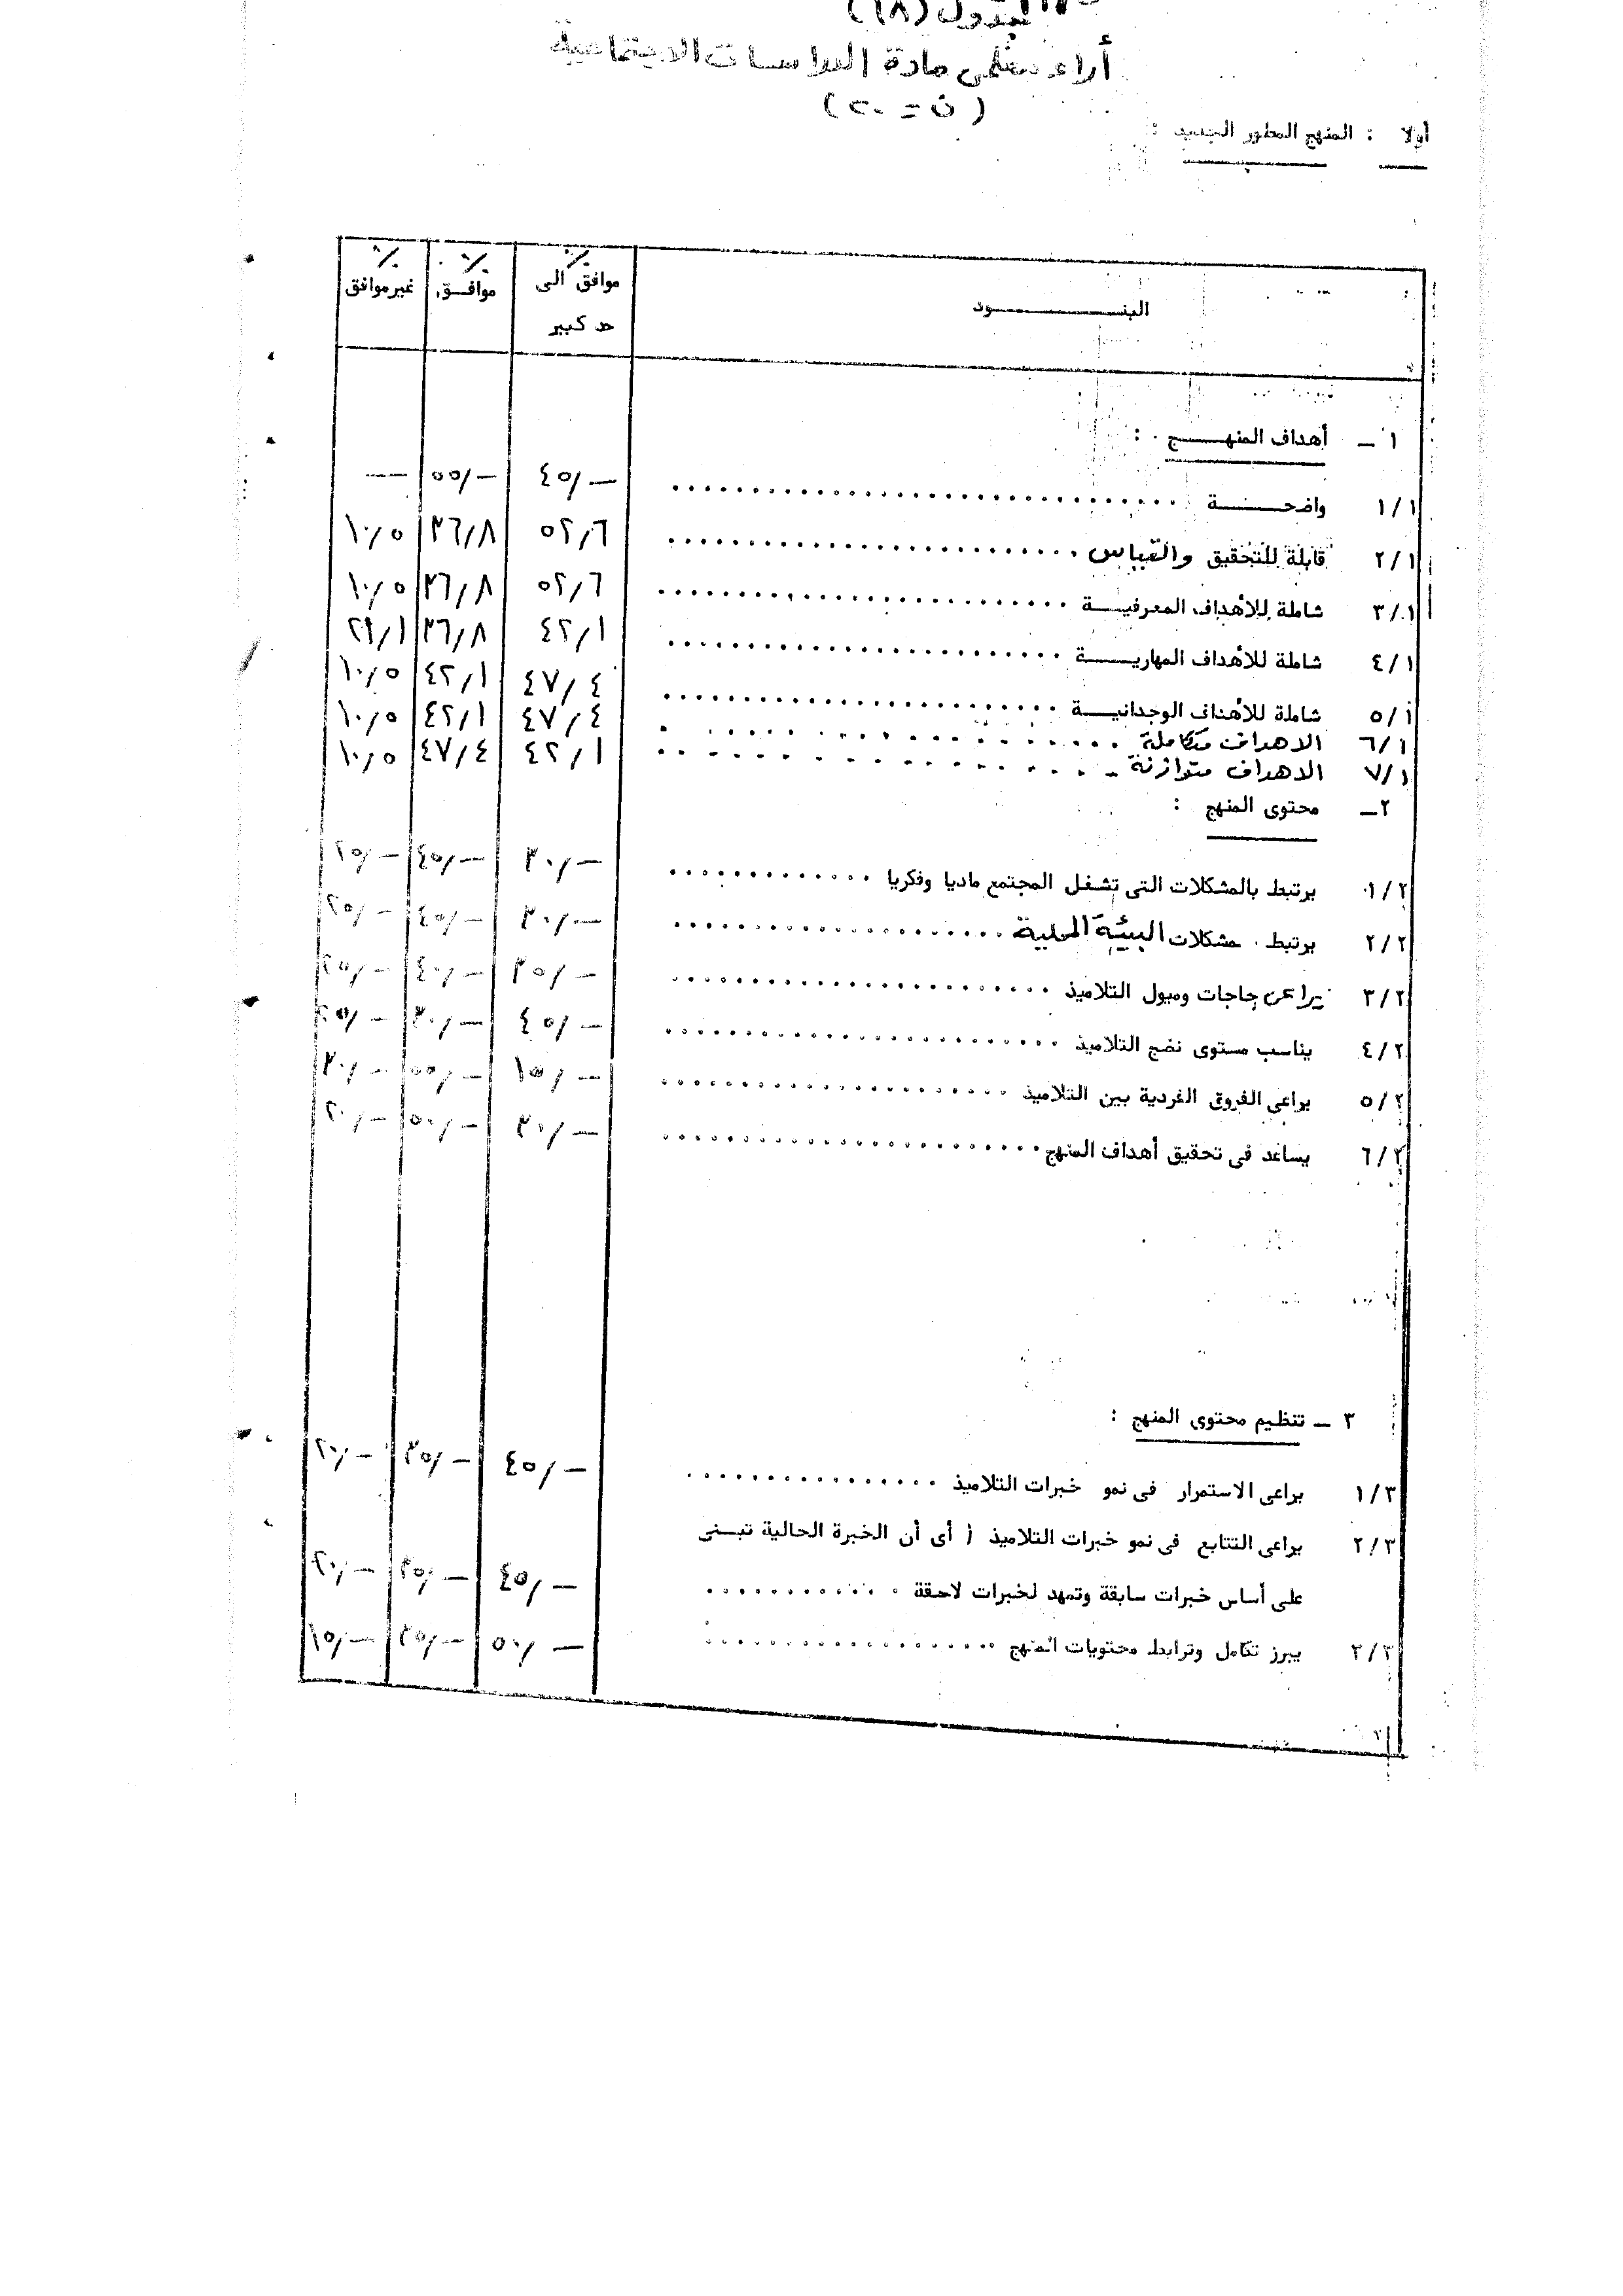 جدول (١٨)
أراء معلمى مادة الدراسات الاجتماعية
(ن = ٢٠)
أولا : المنهج المطور الجديد :
البنود ٪ موافق الى حد كبير ٪ موافق ٪ غير موافق
١ - أهداف المنهج :
١/١ واضحة .......... ٤٥/- ٥٥/- -
٢/١ قابلة للتحقيق والقياس .......... ٥٢/٦ ٣٦/٨ ١٠/٥
٣/١ شاملة للأهداف المعرفية .......... ٥٢/٦ ٣٦/٨ ١٠/٥
٤/١ شاملة للأهداف المهارية .......... ٤٢/١ ٣٦/٨ ٢١/١
٥/١ شاملة للأهداف الوجدانية .......... ٤٧/٤ ٤٢/١ ١٠/٥
٦/١ الاهداف متكاملة .......... ٤٧/٤ ٤٢/١ ١٠/٥
٧/١ الاهداف متوازنة .......... ٤٢/١ ٤٧/٤ ١٠/٥
٢- محتوى المنهج :
١/٢ يرتبط بالمشكلات التى تشغل المجتمع ماديا وفكريا .......... ٣٠/- ٤٥/- ٢٥/-
٢/٢ يرتبط بمشكلات البيئة المحلية .......... ٣٠/- ٤٥/- ٢٥/-
٣/٢ يراعى حاجات وميول التلاميذ .......... ٣٥/- ٤٠/- ٢٥/-
٤/٢ يناسب مستوى نضج التلاميذ .......... ٤٥/- ٣٠/- ٢٥/-
٥/٢ يراعى الفروق الفردية بين التلاميذ .......... ١٥/- ٥٥/- ٣٠/-
٦/٢ يساعد فى تحقيق أهداف المنهج .......... ٣٠/- ٥٠/- ٢٠/-
٣ - تنظيم محتوى المنهج :
١/٣ يراعى الاستمرار فى نمو خبرات التلاميذ .......... ٤٥/- ٣٥/- ٢٠/-
٢/٣ يراعى التتابع فى نمو خبرات التلاميذ ( أى أن الخبرة الحالية تبنى
على أساس خبرات سابقة وتمهد لخبرات لاحقة .......... ٤٥/- ٣٥/- ٢٠/-
٣/٣ يبرز تكامل وترابط محتويات المنهج .......... ٥٠/- ٣٥/- ١٥/-